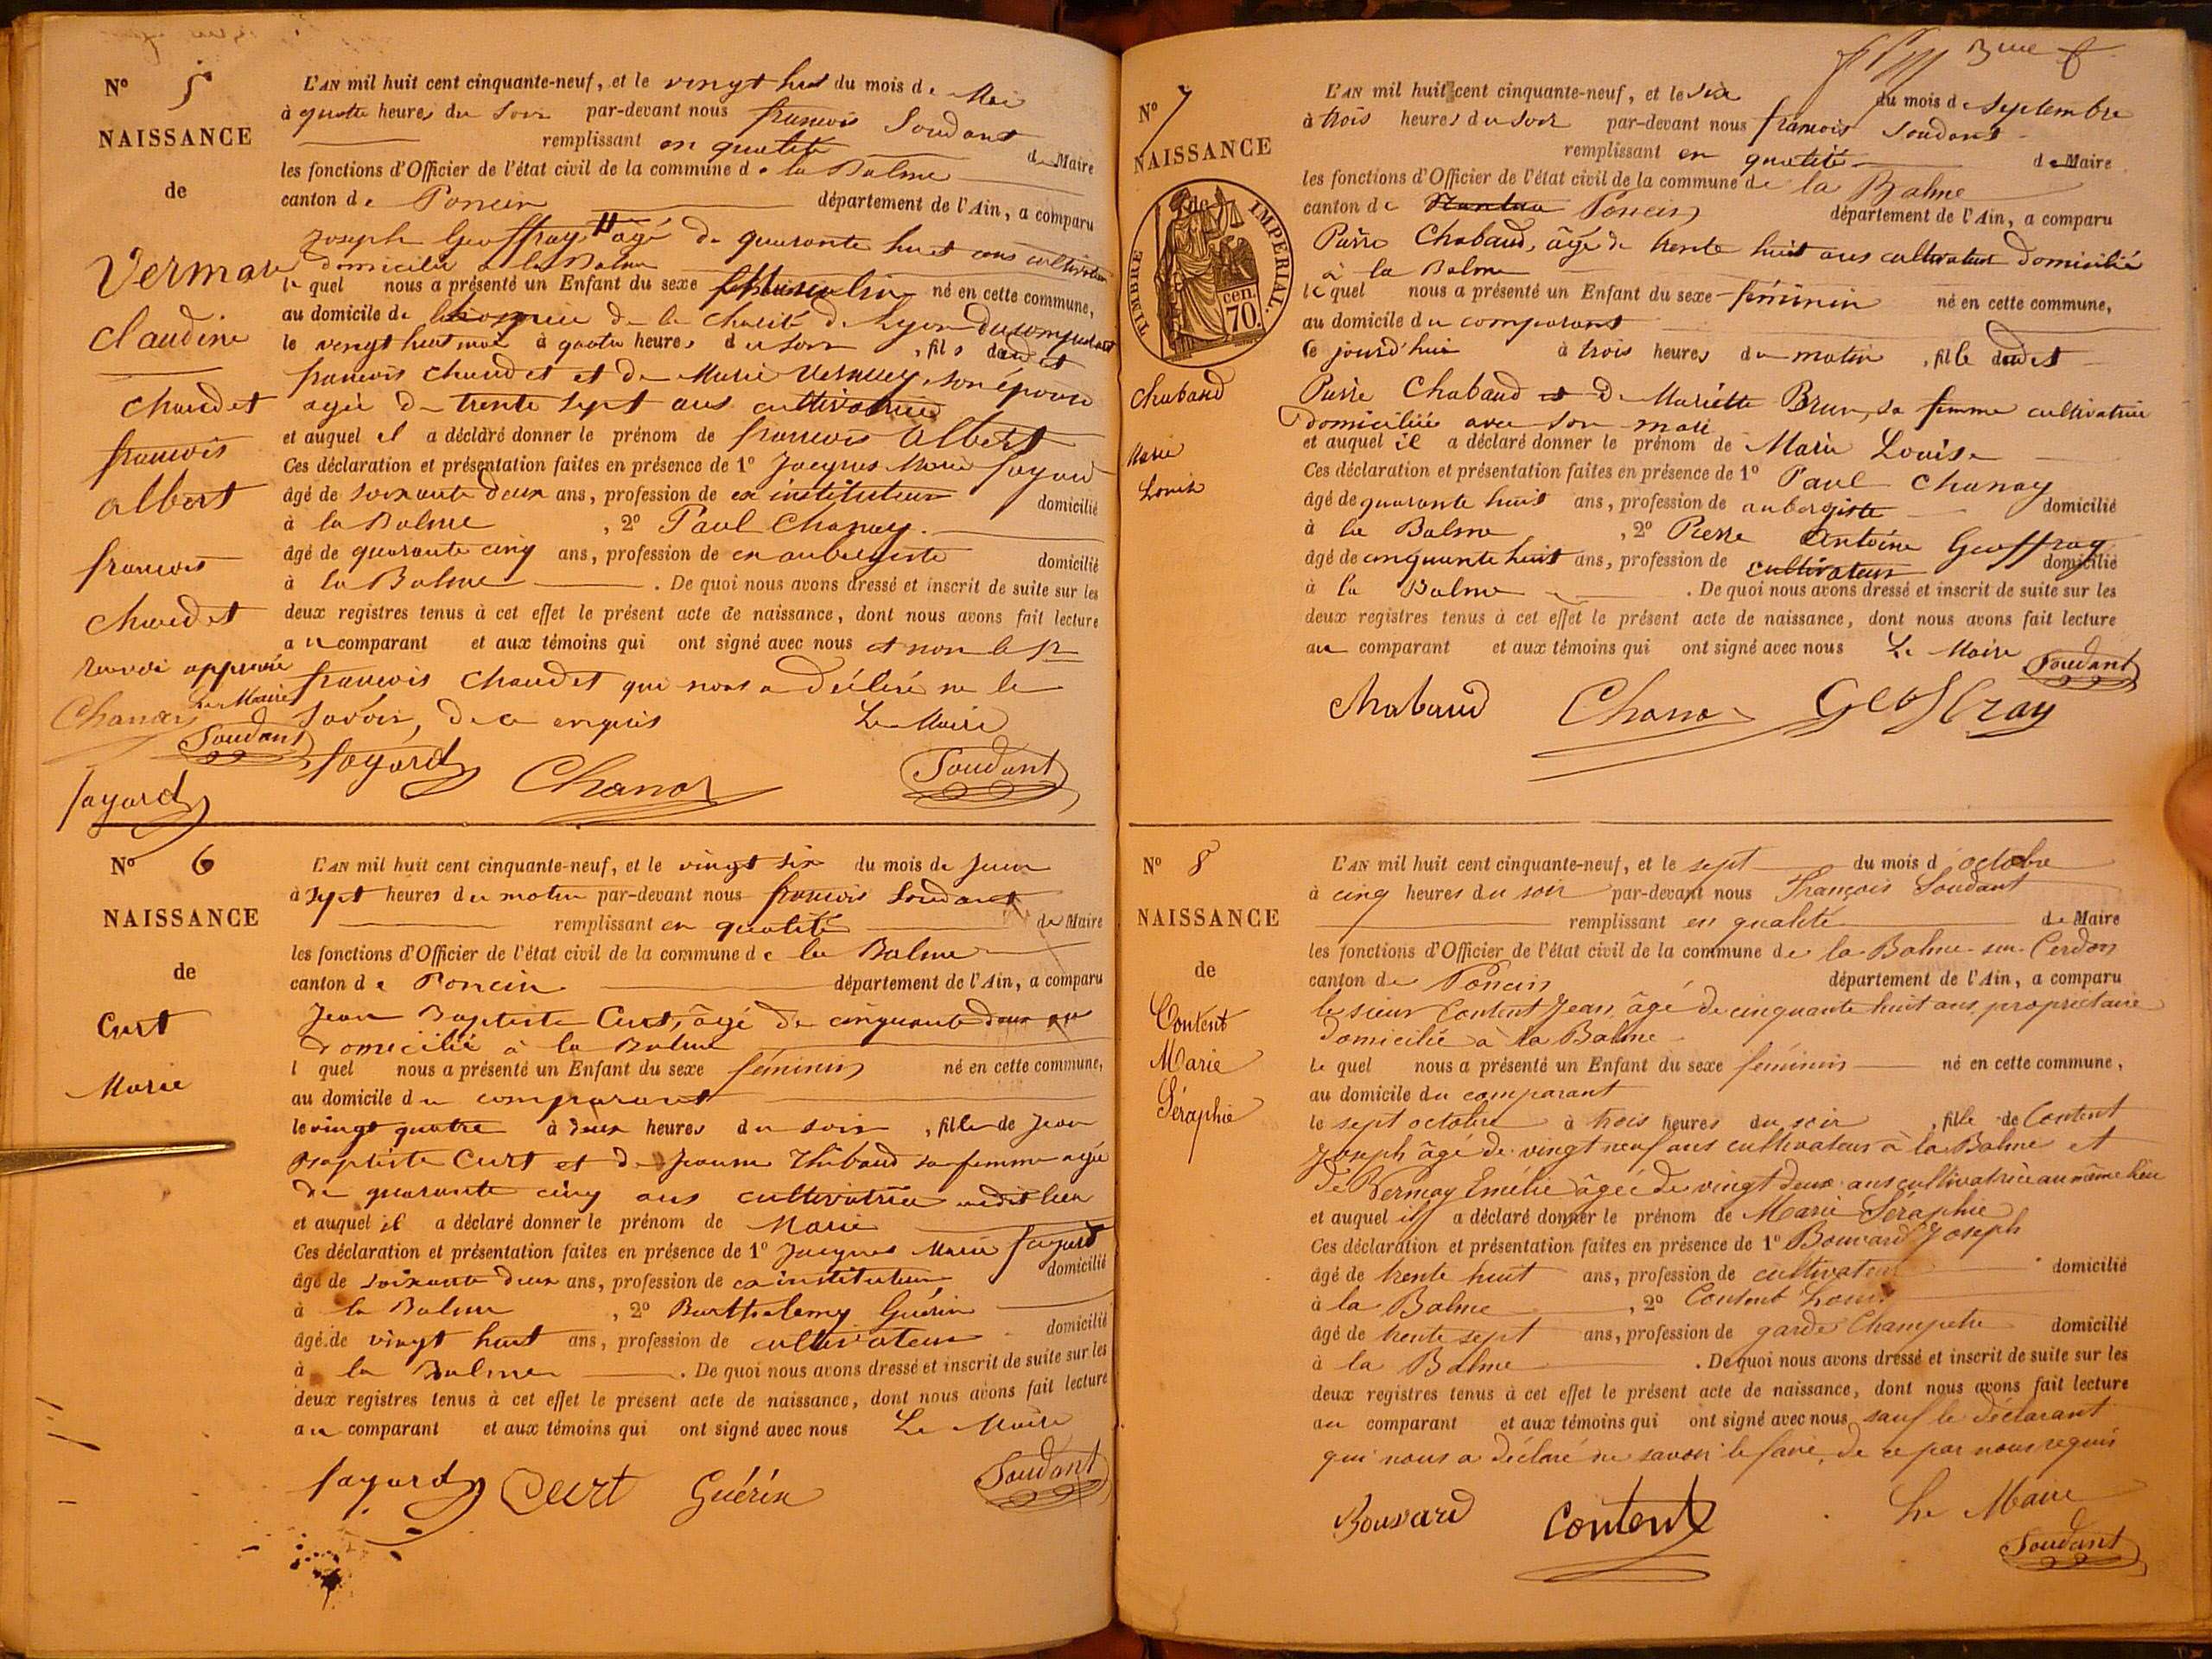 N° 5
NAISSANCE
de
Vermare
Claudine
chaudet
francois
albert
francois
chaudet
renvoi approuvé
Le Maire
Chanay
Soudant
fayard
L'AN mil huit cent cinquante-neuf, et le vingt huit du mois de Mai
à quatre heures du Soir par-devant nous francois Soudant
remplissant en qualité de Maire
les fonctions d'Officier de l'état civil de la commune de la Balme
canton de Poncin département de l'Ain, a comparu
Joseph Geoffray agé de quarante huit ans cultivateur
domicilié a la Balme
le quel nous a présenté un Enfant du sexe Masculin né en cette commune,
au domicile de la charité de Lyon du comparant
le vingt huit mai à quatre heures du soir, fils dudit
francois chaudet et de Marie Vermey, son épouse
agée de trente sept ans cultivatrice
et auquel il a déclaré donner le prénom de francois albert
Ces déclaration et présentation faites en présence de 1° Jacques Marie fayard
âgé de soixante deux ans, profession de ex instituteur domicilié
à la Balme, 2° Paul Chanay
âgé de quarante cinq ans, profession de en aubergiste domicilié
à la Balme. De quoi nous avons dressé et inscrit de suite sur les
deux registres tenus à cet effet le présent acte de naissance, dont nous avons fait lecture
au comparant et aux témoins qui ont signé avec nous et non le
francois chaudet qui nous a déclaré ne le
savoir, de ce enquis Le Maire
fayard Chanay Soudant
N° 6
NAISSANCE
de
Curt
Marie
L'AN mil huit cent cinquante-neuf, et le vingt six du mois de Juin
à sept heures du matin par-devant nous francois Soudant
remplissant en qualité de Maire
les fonctions d'Officier de l'état civil de la commune de la Balme
canton de Poncin département de l'Ain, a comparu
Jean Baptiste Curt, âgé de cinquante deux ans
domicilié à la Balme
l quel nous a présenté un Enfant du sexe féminin né en cette commune,
au domicile du comparant
le vingt quatre à deux heures du soir, fille de Jean
Baptiste Curt et de Jeanne Thibaud sa femme agée
de quarante cinq ans cultivatrice audit lieu
et auquel il a déclaré donner le prénom de Marie
Ces déclaration et présentation faites en présence de 1° Jacques Marie fayard
âgé de soixante deux ans, profession de ex instituteur domicilié
à la Balme, 2° Barthelemy Guérin
âgé de vingt huit ans, profession de cultivateur domicilié
à la Balme. De quoi nous avons dressé et inscrit de suite sur les
deux registres tenus à cet effet le présent acte de naissance, dont nous avons fait lecture
au comparant et aux témoins qui ont signé avec nous Le Maire
fayard Curt Guérin Soudant
3me f
N° 7
NAISSANCE
de
TIMBRE IMPERIAL.
70 cen.
Chabaud
Marie
Louise
L'AN mil huit cent cinquante-neuf, et le six du mois de Septembre
à trois heures du soir par-devant nous francois Soudant
remplissant en qualité de Maire
les fonctions d'Officier de l'état civil de la commune de la Balme
canton de Nantua Poncin département de l'Ain, a comparu
Pierre Chabaud, âgé de trente huit ans cultivateur domicilié
à la Balme
le quel nous a présenté un Enfant du sexe féminin né en cette commune,
au domicile du comparant
le jourd'hui à trois heures du matin, fille dudit
Pierre Chabaud et de Mariette Brun, sa femme cultivatrice
domiciliée avec son mari
et auquel il a déclaré donner le prénom de Marie Louise
Ces déclaration et présentation faites en présence de 1° Paul Chanay
âgé de quarante huit ans, profession de aubergiste domicilié
à la Balme, 2° Pierre Antoine Geoffray
âgé de cinquante huit ans, profession de cultivateur domicilié
à la Balme. De quoi nous avons dressé et inscrit de suite sur les
deux registres tenus à cet effet le présent acte de naissance, dont nous avons fait lecture
au comparant et aux témoins qui ont signé avec nous Le Maire
Soudant
Chabaud Chanay Geoffray
N° 8
NAISSANCE
de
Content
Marie
Séraphie
L'AN mil huit cent cinquante-neuf, et le sept du mois d octobre
à cinq heures du soir par-devant nous François Soudant
remplissant en qualité de Maire
les fonctions d'Officier de l'état civil de la commune de la Balme-sur-Cerdon
canton de Poncin département de l'Ain, a comparu
le sieur Content Jean, âgé de cinquante huit ans, propriétaire
domicilié à la Balme
le quel nous a présenté un Enfant du sexe féminin né en cette commune,
au domicile du comparant
le sept octobre à trois heures du soir, fille de Content
Joseph âgé de vingt neuf ans cultivateur à la Balme et
de Vermay Emélie âgée de vingt deux ans cultivatrice au même lieu
et auquel il a déclaré donner le prénom de Marie Séraphie
Ces déclaration et présentation faites en présence de 1° Bouvard Joseph
âgé de trente huit ans, profession de cultivateur domicilié
à la Balme, 2° Content Louis
âgé de trente sept ans, profession de garde Champetre domicilié
à la Balme. De quoi nous avons dressé et inscrit de suite sur les
deux registres tenus à cet effet le présent acte de naissance, dont nous avons fait lecture
au comparant et aux témoins qui ont signé avec nous sauf le déclarant
qui nous a déclaré ne savoir le faire, de ce par nous requis
Le Maire
Bouvard Content Soudant